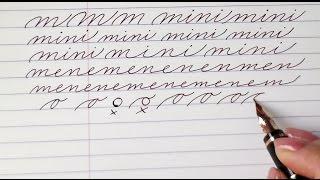 m m m mini mini
mini mini mini mini
mini mini mini
menemenenenmen
menemenemenem
o o o o o o o
x x